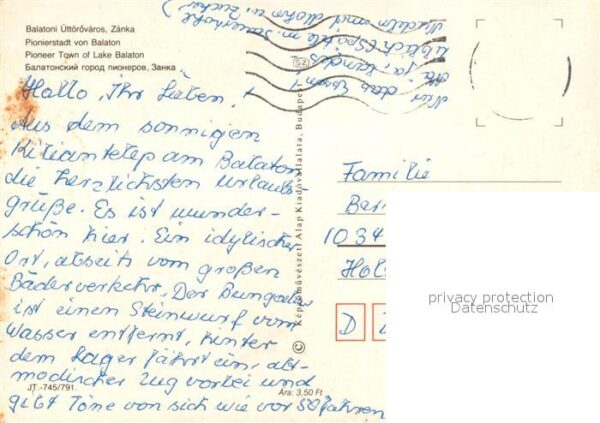 Balatoni Úttörőváros, Zánka
Pionierstadt von Balaton
Pioneer Town of Lake Balaton
Балатонский город пионеров, Занка
Hallo, Ihr Lieben!
Aus dem sonnigen
Kiliantelep am Balaton
die herzlichsten Urlaubs-
grüße. Es ist wunder-
schön hier. Ein idylischer
Ort, abseits vom großen
Bäderverkehr. Der Bungalow
ist einen Steinwurf vom
Wasser entfernt, hinter
dem Lager fährt ein, alt-
modischer Zug vorbei und
gibt Töne von sich wie vor 50 Jahren
Nur das Essen
Nudeln mit Mohn u. Zucker
JT.-745/791.
Ára: 3,50 Ft
© Képzőművészeti Alap Kiadóvállalata, Budapest
SZ
Familie
Ber
1034
Hol
D
privacy protection
Datenschutz